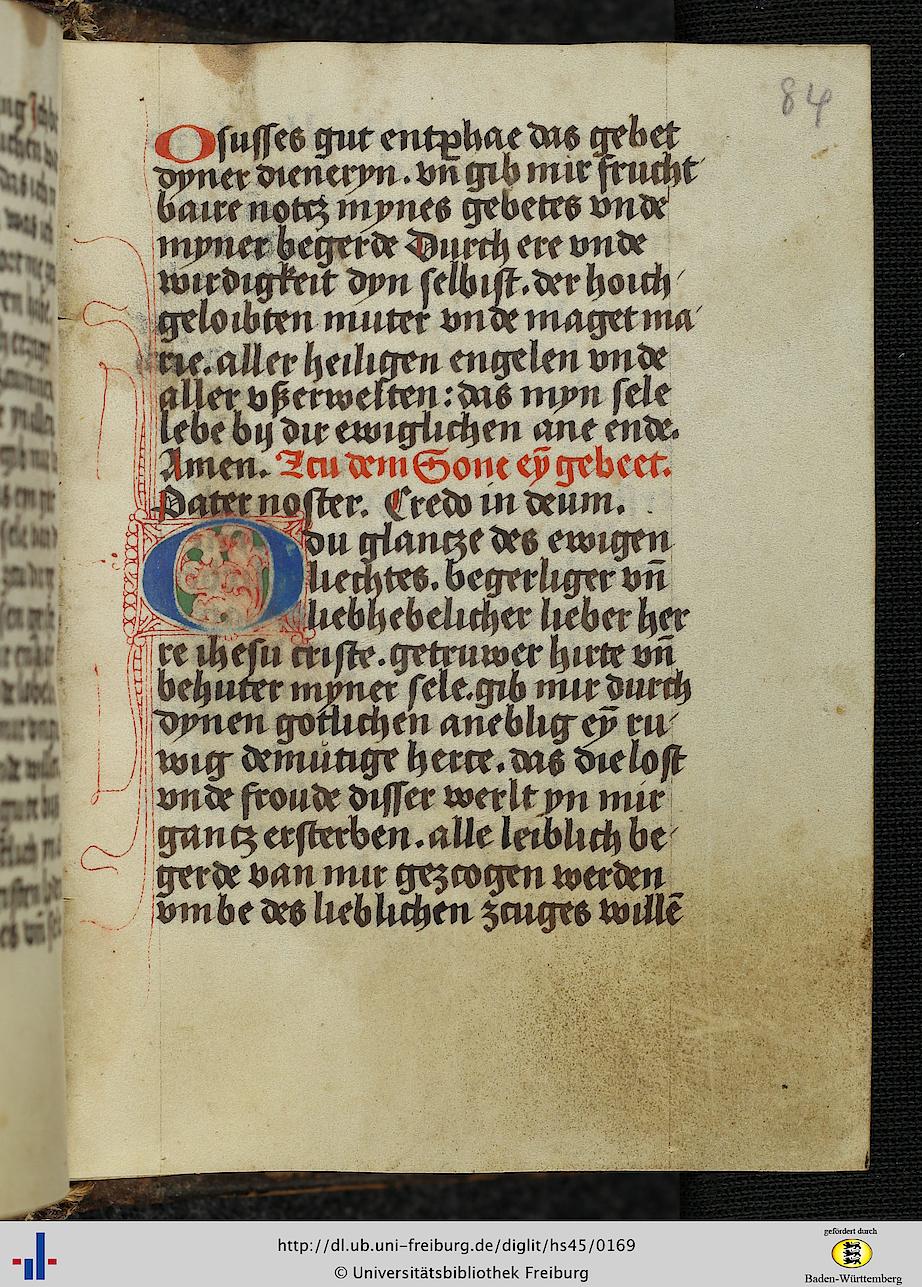 84
O susses gut entphae das gebet
dyner dieneryn. vn̄ gib mir frucht
baire notcz mynes gebetes vnde
myner begerde Durch ere vnde
wirdigkeit dyn selbist. der hoich
geloibten muter vnde maget ma
rie. aller heiligen engelen vnde
aller vßerwelten: das myn sele
lebe bij dir ewiglichen ane ende.
Amen. Zcu dem Sone eȳ gebeet.
Pater noster. Credo in deum.
O du glantze des ewigen
liechtes. begerliger vn̄
liebhebelicher lieber her
re ihesu criste. getruwer hirte vn̄
behuter myner sele. gib mir durch
dynen gotlichen aneblig eȳ ru
wig demutige herce. das die lost
vnde froude disser werlt yn mir
gantz ersterben. alle leiblich be
gerde van mir gezcogen werden
vmbe des lieblichen zcuges willē
http://dl.ub.uni-freiburg.de/diglit/hs45/0169
© Universitätsbibliothek Freiburg
gefördert durch
Baden-Württemberg